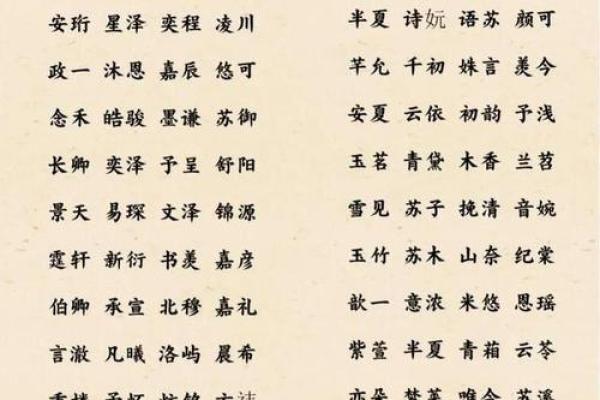 安珩 星泽 奕程 凌川
政一 沐恩 嘉辰 悠可
念禾 皓骏 墨谦 苏御
长卿 奕泽 予呈 舒阳
景天 易琛 文泽 锦源
霆轩 新衍 书羡 嘉彦
伯卿 承宣 北穆 嘉礼
言澈 凡曦 洛屿 晨希
半夏 诗妧 语苏 颜可
芊允 千初 姝言 羡今
安夏 云依 初韵 予浅
玉茗 青黛 木香 兰苕
雪见 苏子 挽清 音婉
玉竹 苏木 山奈 纪棠
歆一 意浓 米悠 恩瑶
紫萱 半夏 青葙 云苓
亦朵 唯今 苏溪